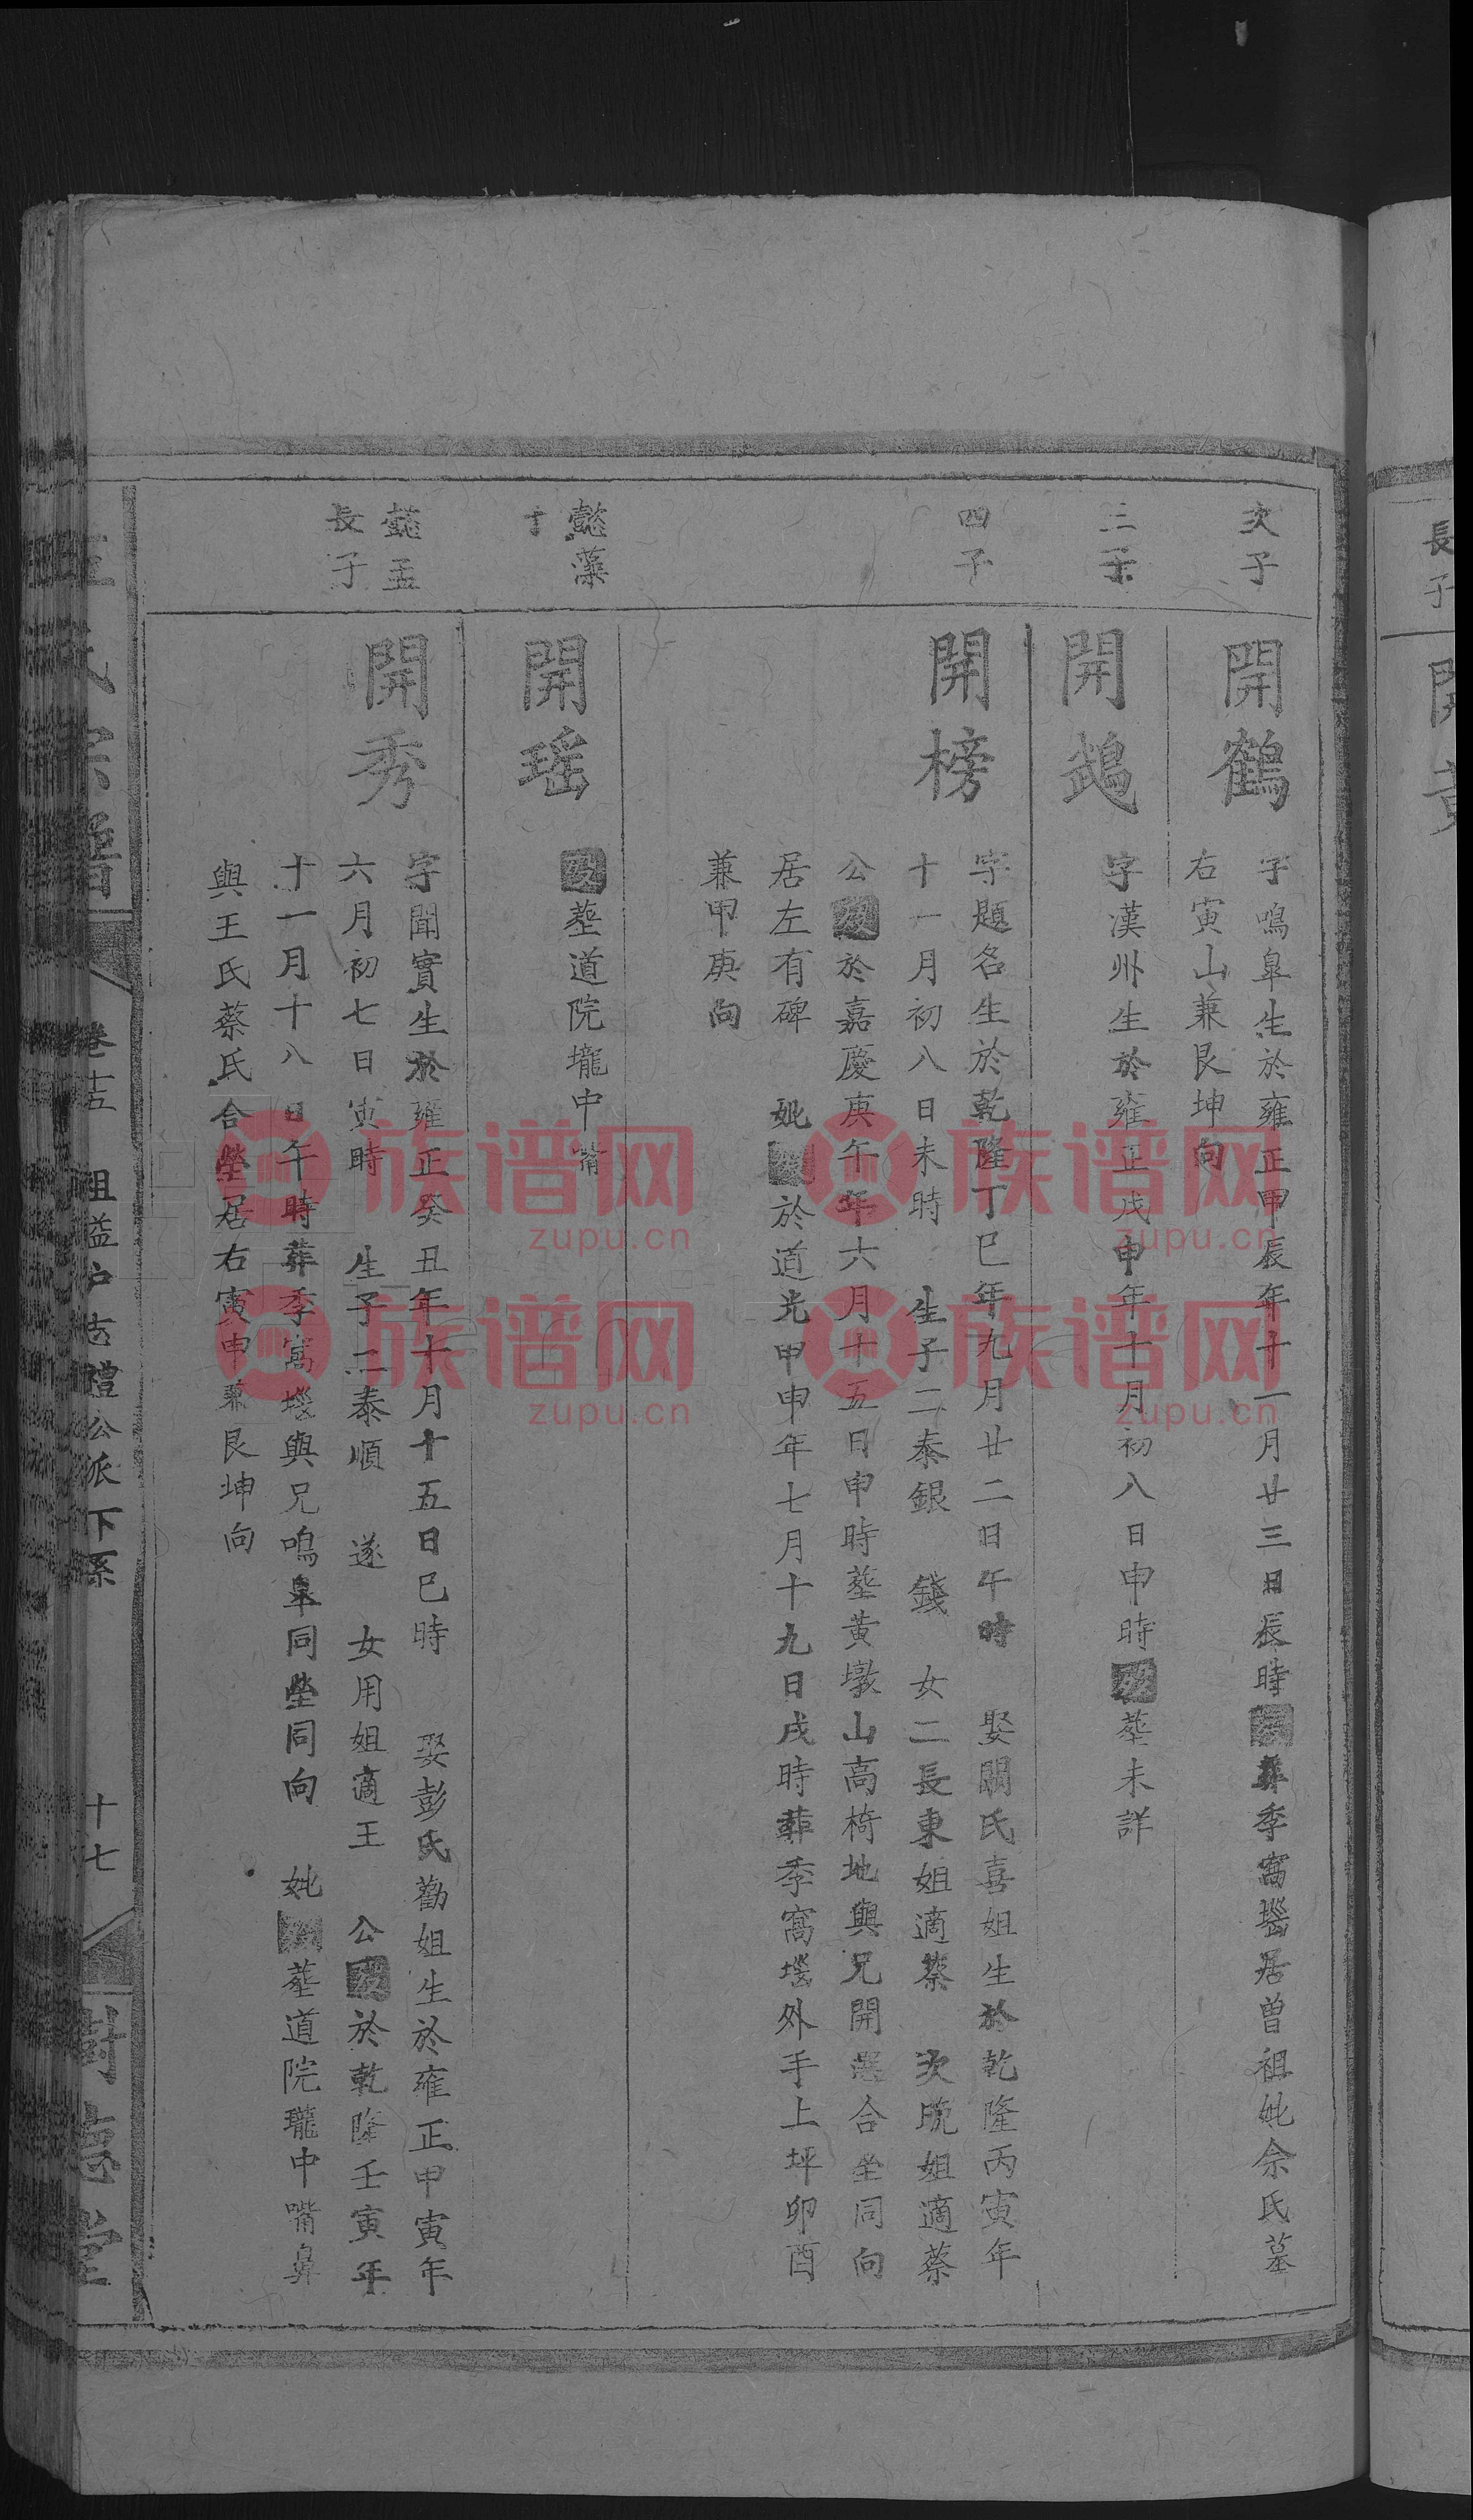 次子
開鶴
字鳴皐生於雍正甲辰年十一月廿三日辰時歿葬季窩塸居曾祖妣余氏墓
右寅山兼艮坤向
三子
開鵡
字漢州生於雍正戊申年十月初八日申時歿塟未詳
四子
開榜
字題名生於乾隆丁巳年九月廿二日午時 娶關氏喜姐生於乾隆丙寅年
十一月初八日未時 生子二泰銀 錢 女二長東姐適蔡 次晚姐適蔡
公歿於嘉慶庚午年六月十五日申時塟黄墩山高椅地與兄開選合塋同向
居左有碑 妣歿於道光甲申年七月十九日戌時葬季窩塸外手上坪卯酉
兼甲庚向
懿藻
子
開瑶
歿塟道院壠中嘴
懿孟
長子
開秀
字聞實生於雍正癸丑年十月十五日巳時 娶彭氏勸姐生於雍正甲寅年
六月初七日寅時 生子二泰順 遂 女用姐適王 公歿於乾隆壬寅年
十一月十八日午時葬季窩塸與兄鳴皐同塋同向 妣歿塟道院壠中嘴鼻
與王氏蔡氏合塋居右寅申兼艮坤向
氏宗譜
卷十五 祖益户志禮公派下系
十七
樹德堂
長子
開
族谱网
zupu.cn
族谱网
zupu.cn
族谱网
zupu.cn
族谱网
zupu.cn